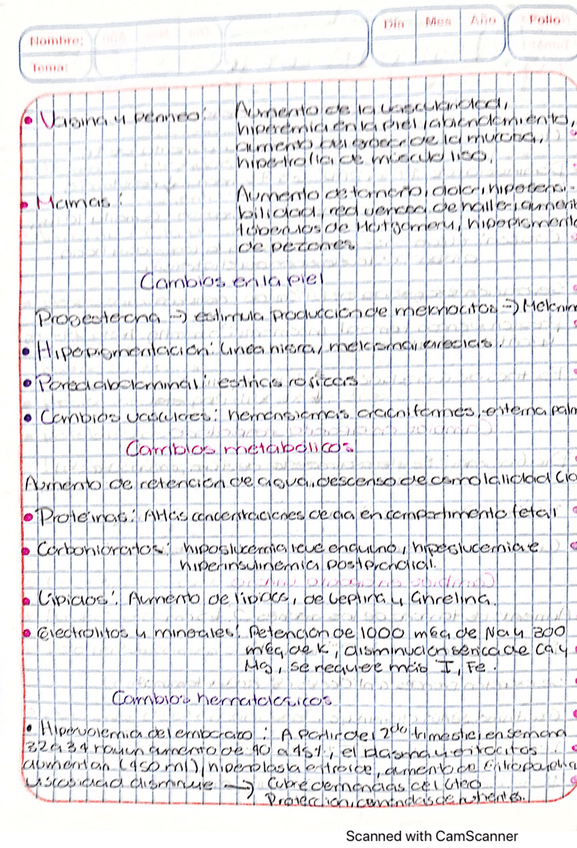 Nombre:
Tema:
Día Mes Año Folio
• Vagina y perineo: Aumento de la vascularidad,
hiperemia en la piel, ablandamiento,
aumento del grosor de la mucosa,
hipertrofia de músculo liso.
• Mamas: Aumento de tamaño, dolor, hipersensi-
bilidad, red venosa de haller, aument
tubérculos de Montgomery, hiperpigmenta
de pezones
Cambios en la piel
Progesterona → estimula producción de melanocitos → Melanin
• Hiperpigmentación: línea nigra, melasma, areolas.
• Pared abdominal: estrías rojizas
• Cambios vasculares: hemangiomas aracniformes, eritema palm
Cambios metabólicos
Aumento de retención de agua, descenso de osmolalidad (10
• Proteínas: Altas concentraciones de aa en compartimento fetal
• Carbohidratos: hipoglucemia leve en ayuno, hiperglucemia e
hiperinsulinemia postprandial.
• Lípidos: Aumento de lípidos, de leptina y Ghrelina.
• Electrolitos y minerales: Retención de 1000 mEq de Na y 300
mEq de K, disminución sérica de Ca y
Mg, se requiere más I, Fe.
Cambios hematológicos
• Hipervolemia del embarazo: A partir del 2do trimestre, en semana
32 a 34 hay un aumento de 40 a 45%, el plasma y eritrocitos
aumentan (450 ml), hiperplasia eritroide, aumento de Eritropoyetina
viscosidad disminuye → Cubre demandas del útero
Protección, aumenta de nutrientes.
Scanned with CamScanner